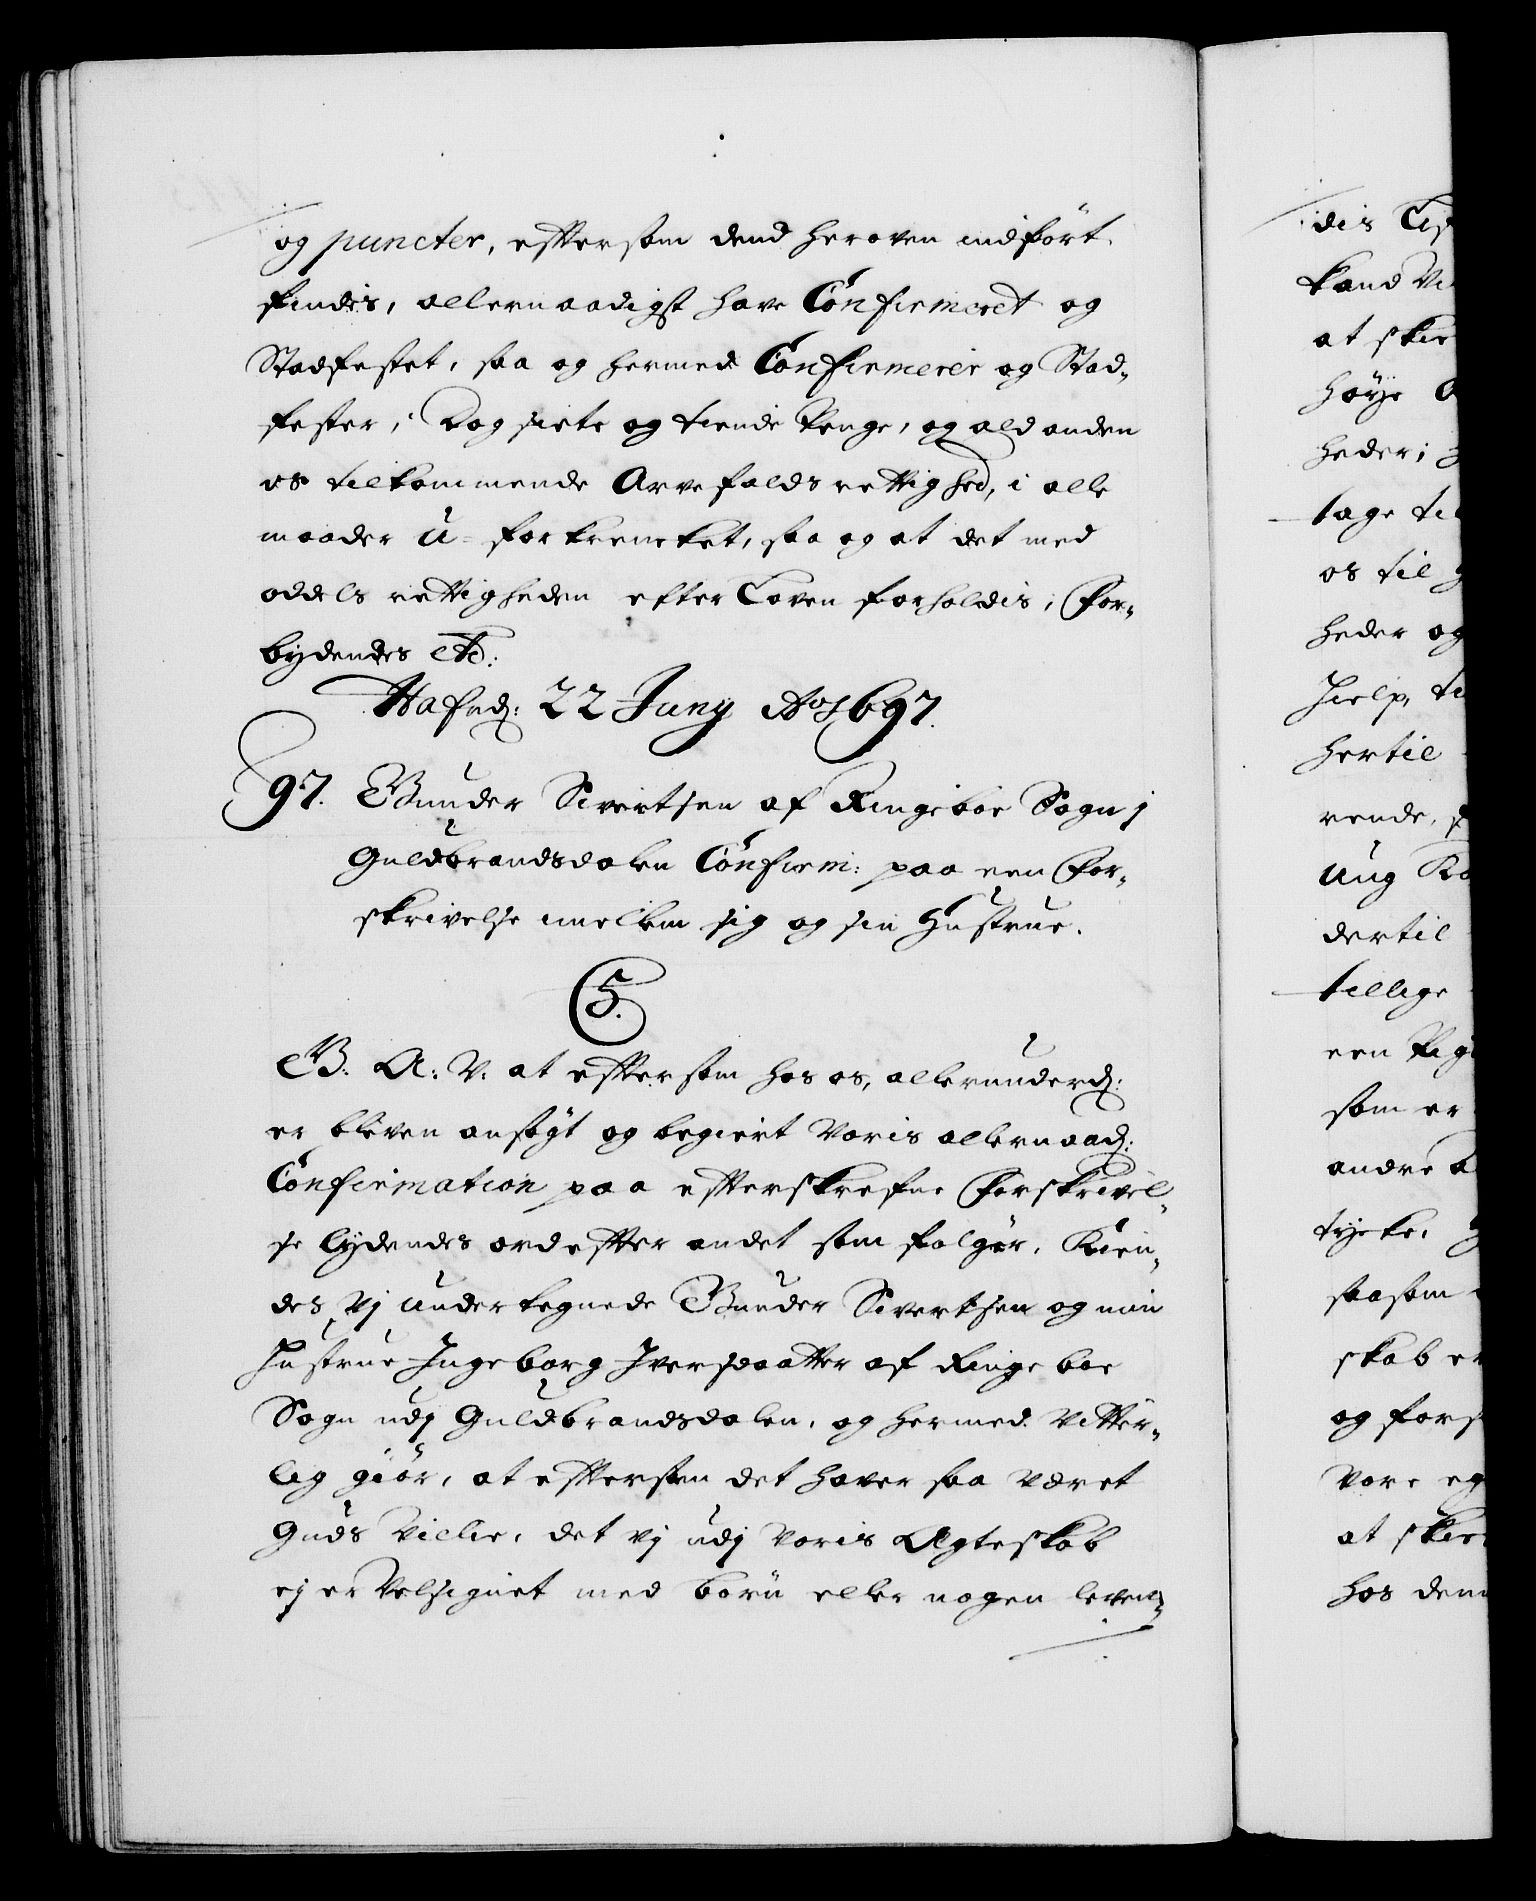 og puncter, efftersom dend heroven indført
findis, allernaadigst have Confirmeret og
Stadfestet, saa og hermed Confirmerer og Stad-
fester, Dog siette og tiende Penge, og ald anden
os tilkommende Arvefalds rettighed, i alle
maader u-forkrencket, saa og at det med
oddels rettigheden efter Loven forholdis, For-
bydendes etc:
Hafnd: 22 Juny Ao 1697.
97. Gunder Sivertsen af Ringeboe Sogn j
Guldbrandsdalen Confirm: paa een For-
skrivelse imellem sig og sin Hustrue.
C5.
G. A: V: at efftersom hos os, allerunderd:
er bleven ansøgt og begiert Voris allernaad:
Confirmation paa efftersk​refne Forskrivel-
se lydendes ord effter andet som følger, Kien-
des Vj undertegnede Gunder Sivertsen og min
Hustrue Ingeborg Iversdaatter af Ringeboe
Sogn udj Guldbrandsdalen, og hermed Vitter-
lig giør, at efftersom det haver saa været
Guds Villie, det vj udj Voris Ægteskab
ej er Velsignet med børn eller nogen leven-
dis
kand
at
høye
heder;
tage
os til
heder og
hielp,
hertil
rende,
ung
dertil
tillige
een
som er
andre
tycke,
saasom
skab
og
Vore
at
hos